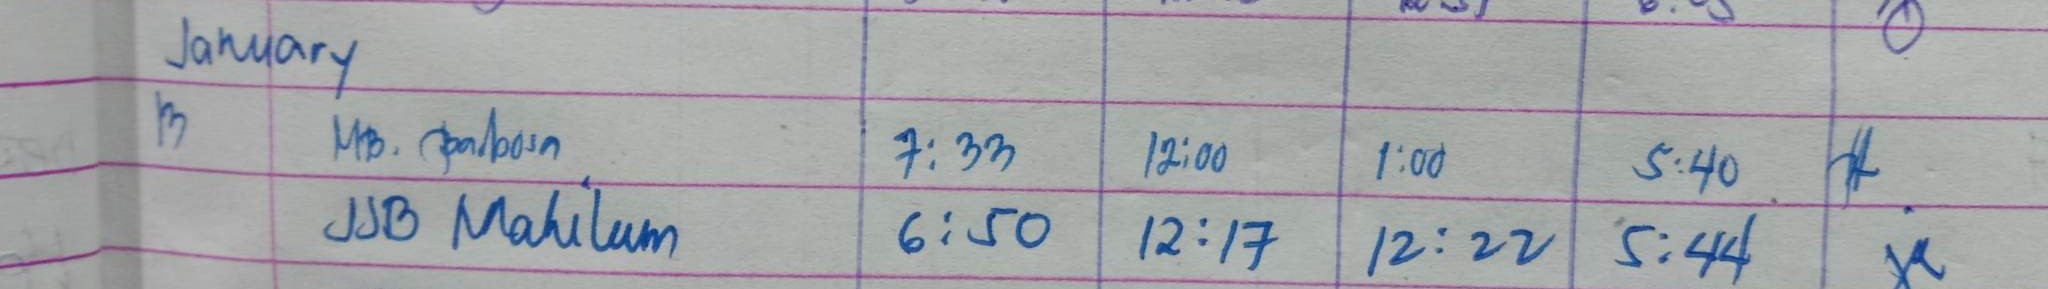 January
13 MB. Barbosa 7:33 12:00 1:00 5:40
JJB Mahilum 6:50 12:17 12:22 5:44